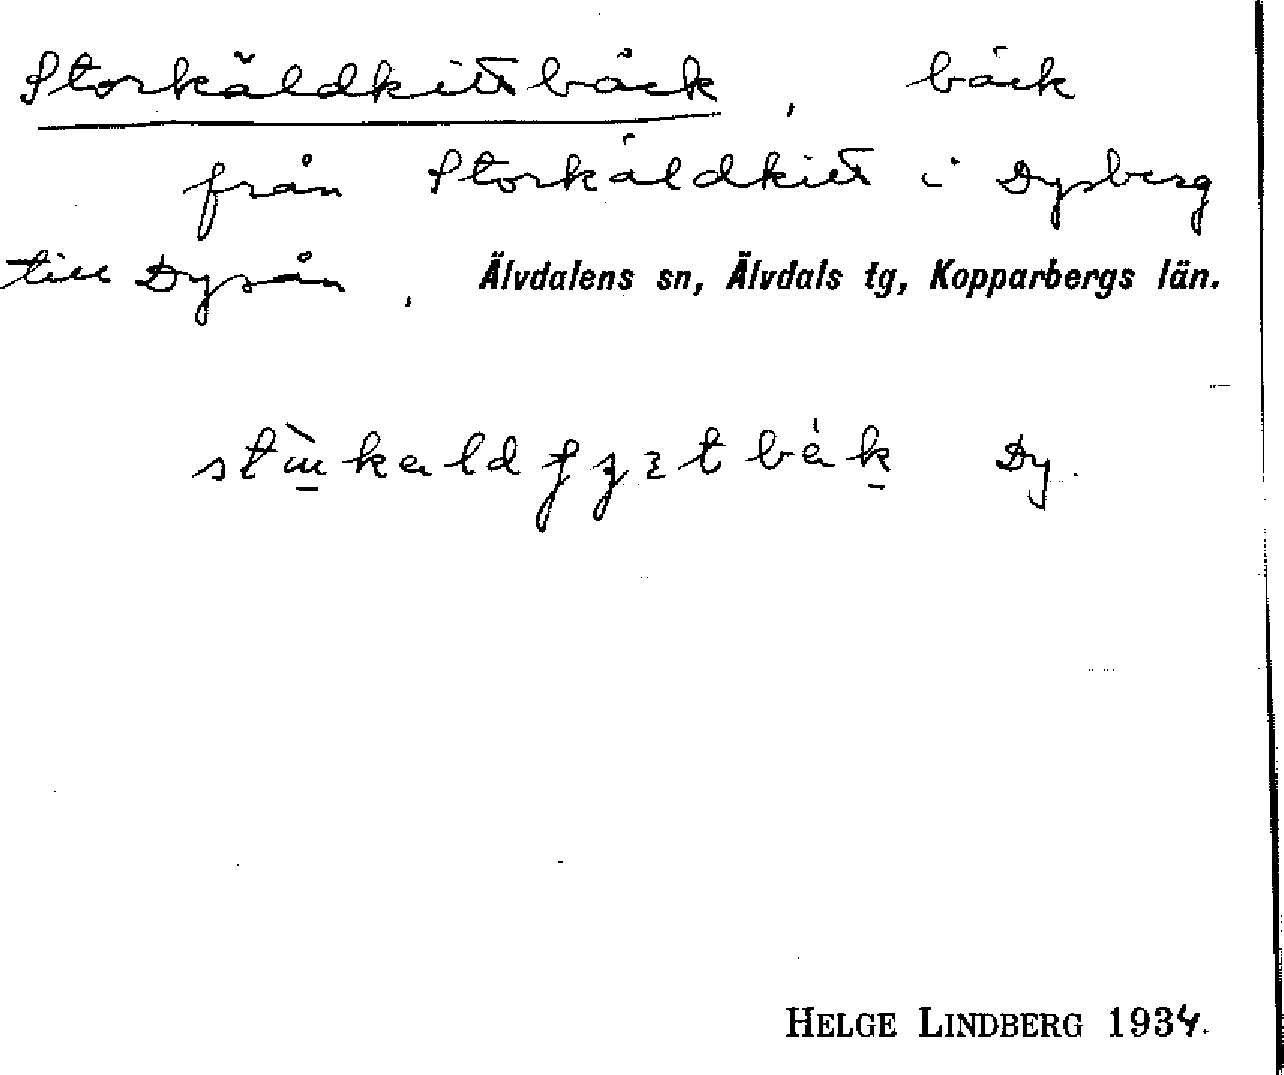 Storkäldkittbäck, bäck
från Storkäldkitt i Dysberg
till Dysån, Älvdalens sn, Älvdals tg, Kopparbergs län.
Dy.
HELGE LINDBERG 1934.